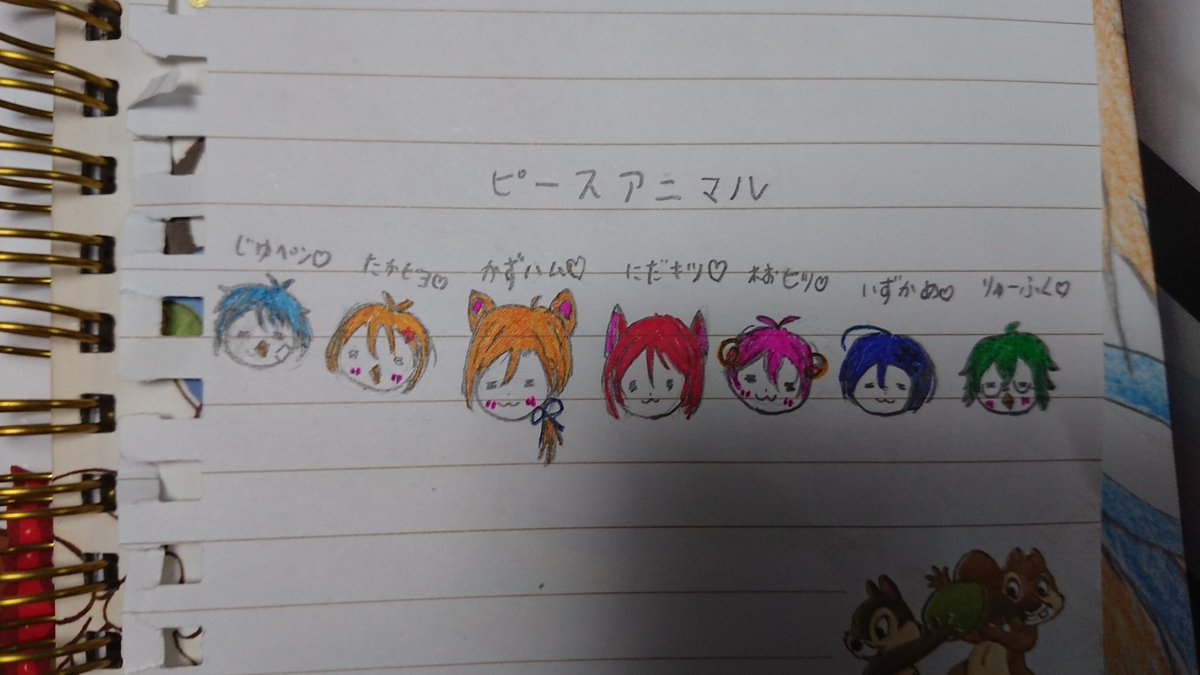 ピースアニマル
じゅペン♡ たかヒヨ♡ かずハム♡ にだキツ♡ ねおヒツ♡ いずかめ♡ りゅーふく♡